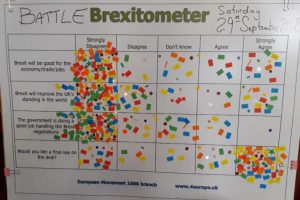 BATTLE Brexitometer Saturday
29th September
Strongly Disagree
Disagree
Don't know
Agree
Strongly Agree
Brexit will be good for the
economy/trade/jobs
Brexit will improve the UK's
standing in the world
The government is doing a
good job handling the Brexit
negotiations
Would you like a final say on
the deal?
European Movement 1066 branch
www.4europe.uk